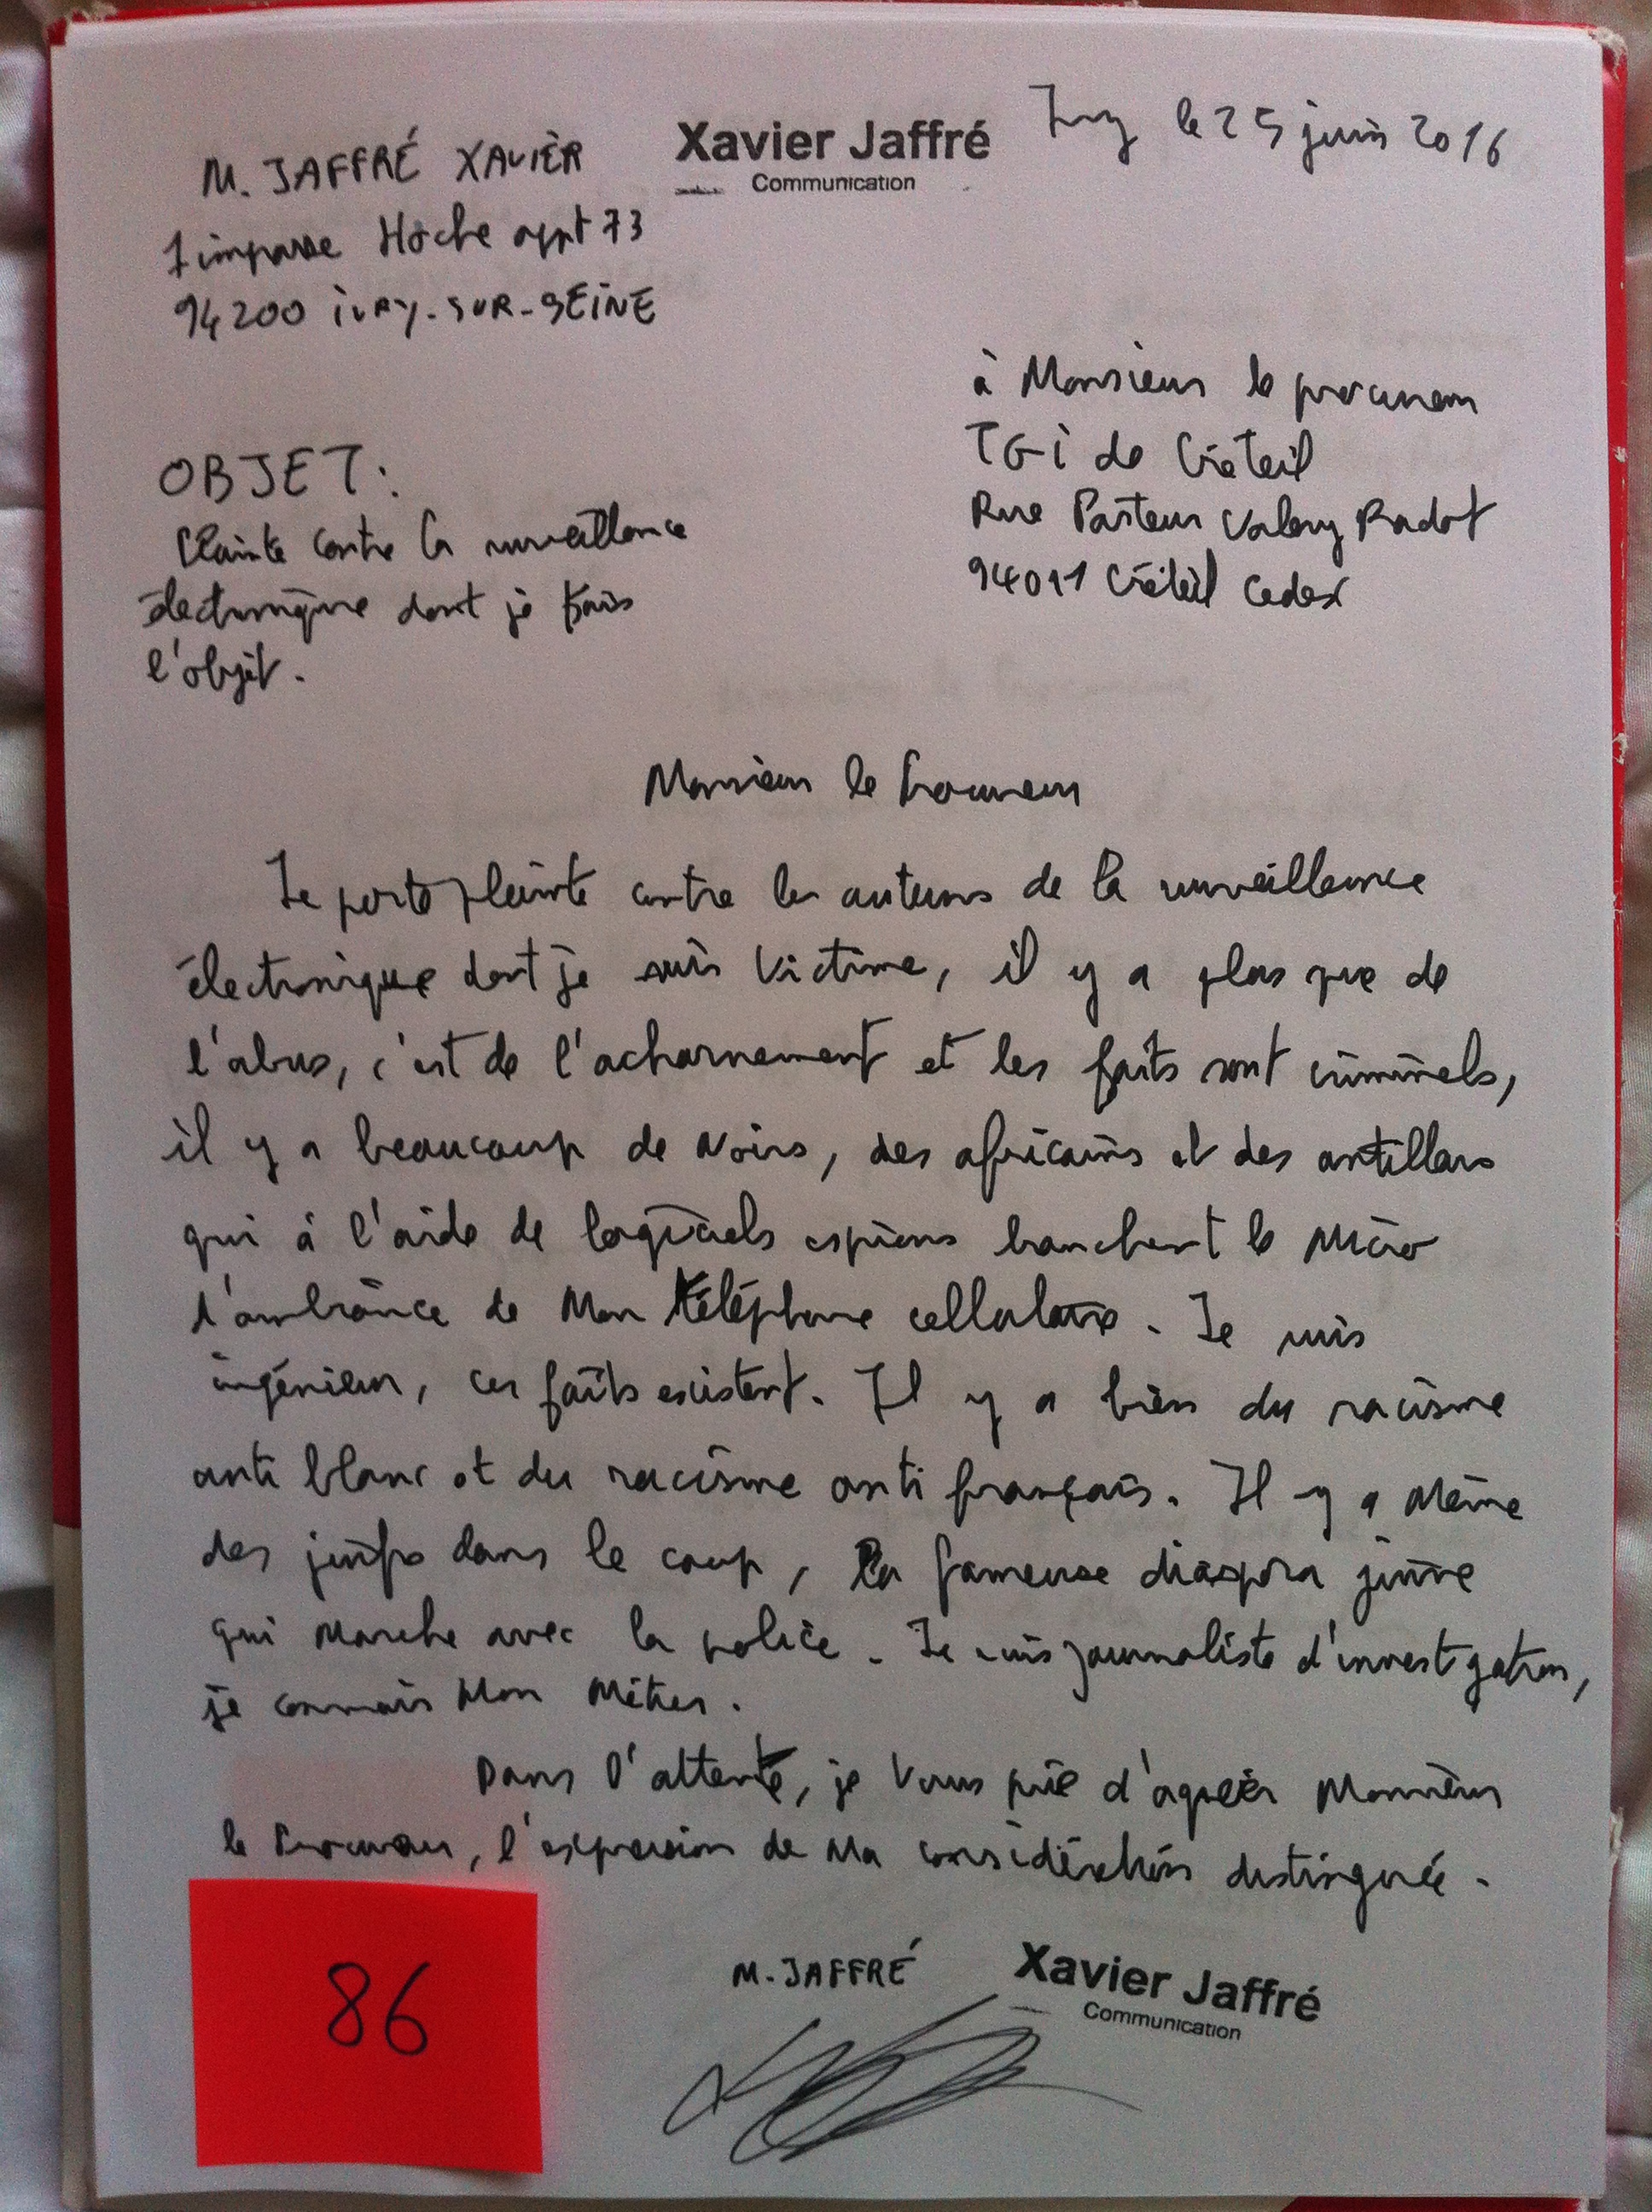 Xavier Jaffré
Communication
Ivry le 25 juin 2016
M. JAFFRÉ XAVIER
1 impasse Hoche appt 73
94200 IVRY-SUR-SEINE
à Monsieur le procureur
TGI de Créteil
Rue Pasteur Valery Radot
94011 Créteil Cedex
OBJET:
Plainte contre la surveillance
électronique dont je fais
l'objet.
Monsieur le Procureur
Je porte plainte contre les auteurs de la surveillance
électronique dont je suis victime, il y a plus que de
l'abus, c'est de l'acharnement et les faits sont criminels,
il y a beaucoup de Noirs, des africains et des antillais
qui à l'aide de logiciels espions branchent le micro
d'ambiance de mon téléphone cellulaire. Je suis
ingénieur, ces faits existent. Il y a bien du racisme
anti blanc et du racisme anti français. Il y a même
des juifs dans le coup, la fameuse diaspora juive
qui marche avec la police. Je suis journaliste d'investigation,
je connais mon métier.
Dans l'attente, je vous prie d'agréer Monsieur
le Procureur, l'expression de ma considération distinguée.
M. JAFFRÉ
Xavier Jaffré
Communication
86